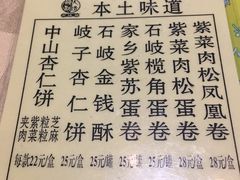 本土味道
紫菜肉松凤凰卷
紫菜肉松蛋卷
石岐榄角蛋卷
家乡紫苏蛋卷
石岐金钱酥
岐子仁饼
中山杏仁饼
芝麻
粒粒
紫菜
夹肉
每款22元/盒 25元/盒 25元/罐 25元/罐 25元/罐 28元/盒 28元/盒